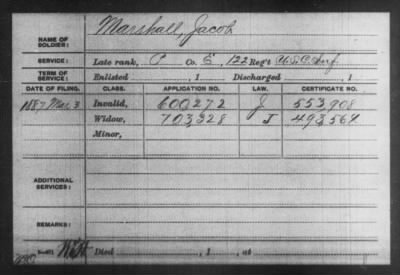 NAME OF SOLDIER: Marshall, Jacob
SERVICE: Late rank, P Co. E, 122 Reg't U.S.C. Inf.
TERM OF SERVICE: Enlisted , 1 Discharged , 1
DATE OF FILING. CLASS. APPLICATION NO. LAW. CERTIFICATE NO.
1887 Mar 3 Invalid, 600272 J 553908
Widow, 703328 J 493564
Minor,
ADDITIONAL SERVICES:
REMARKS:
Died , 1 , at